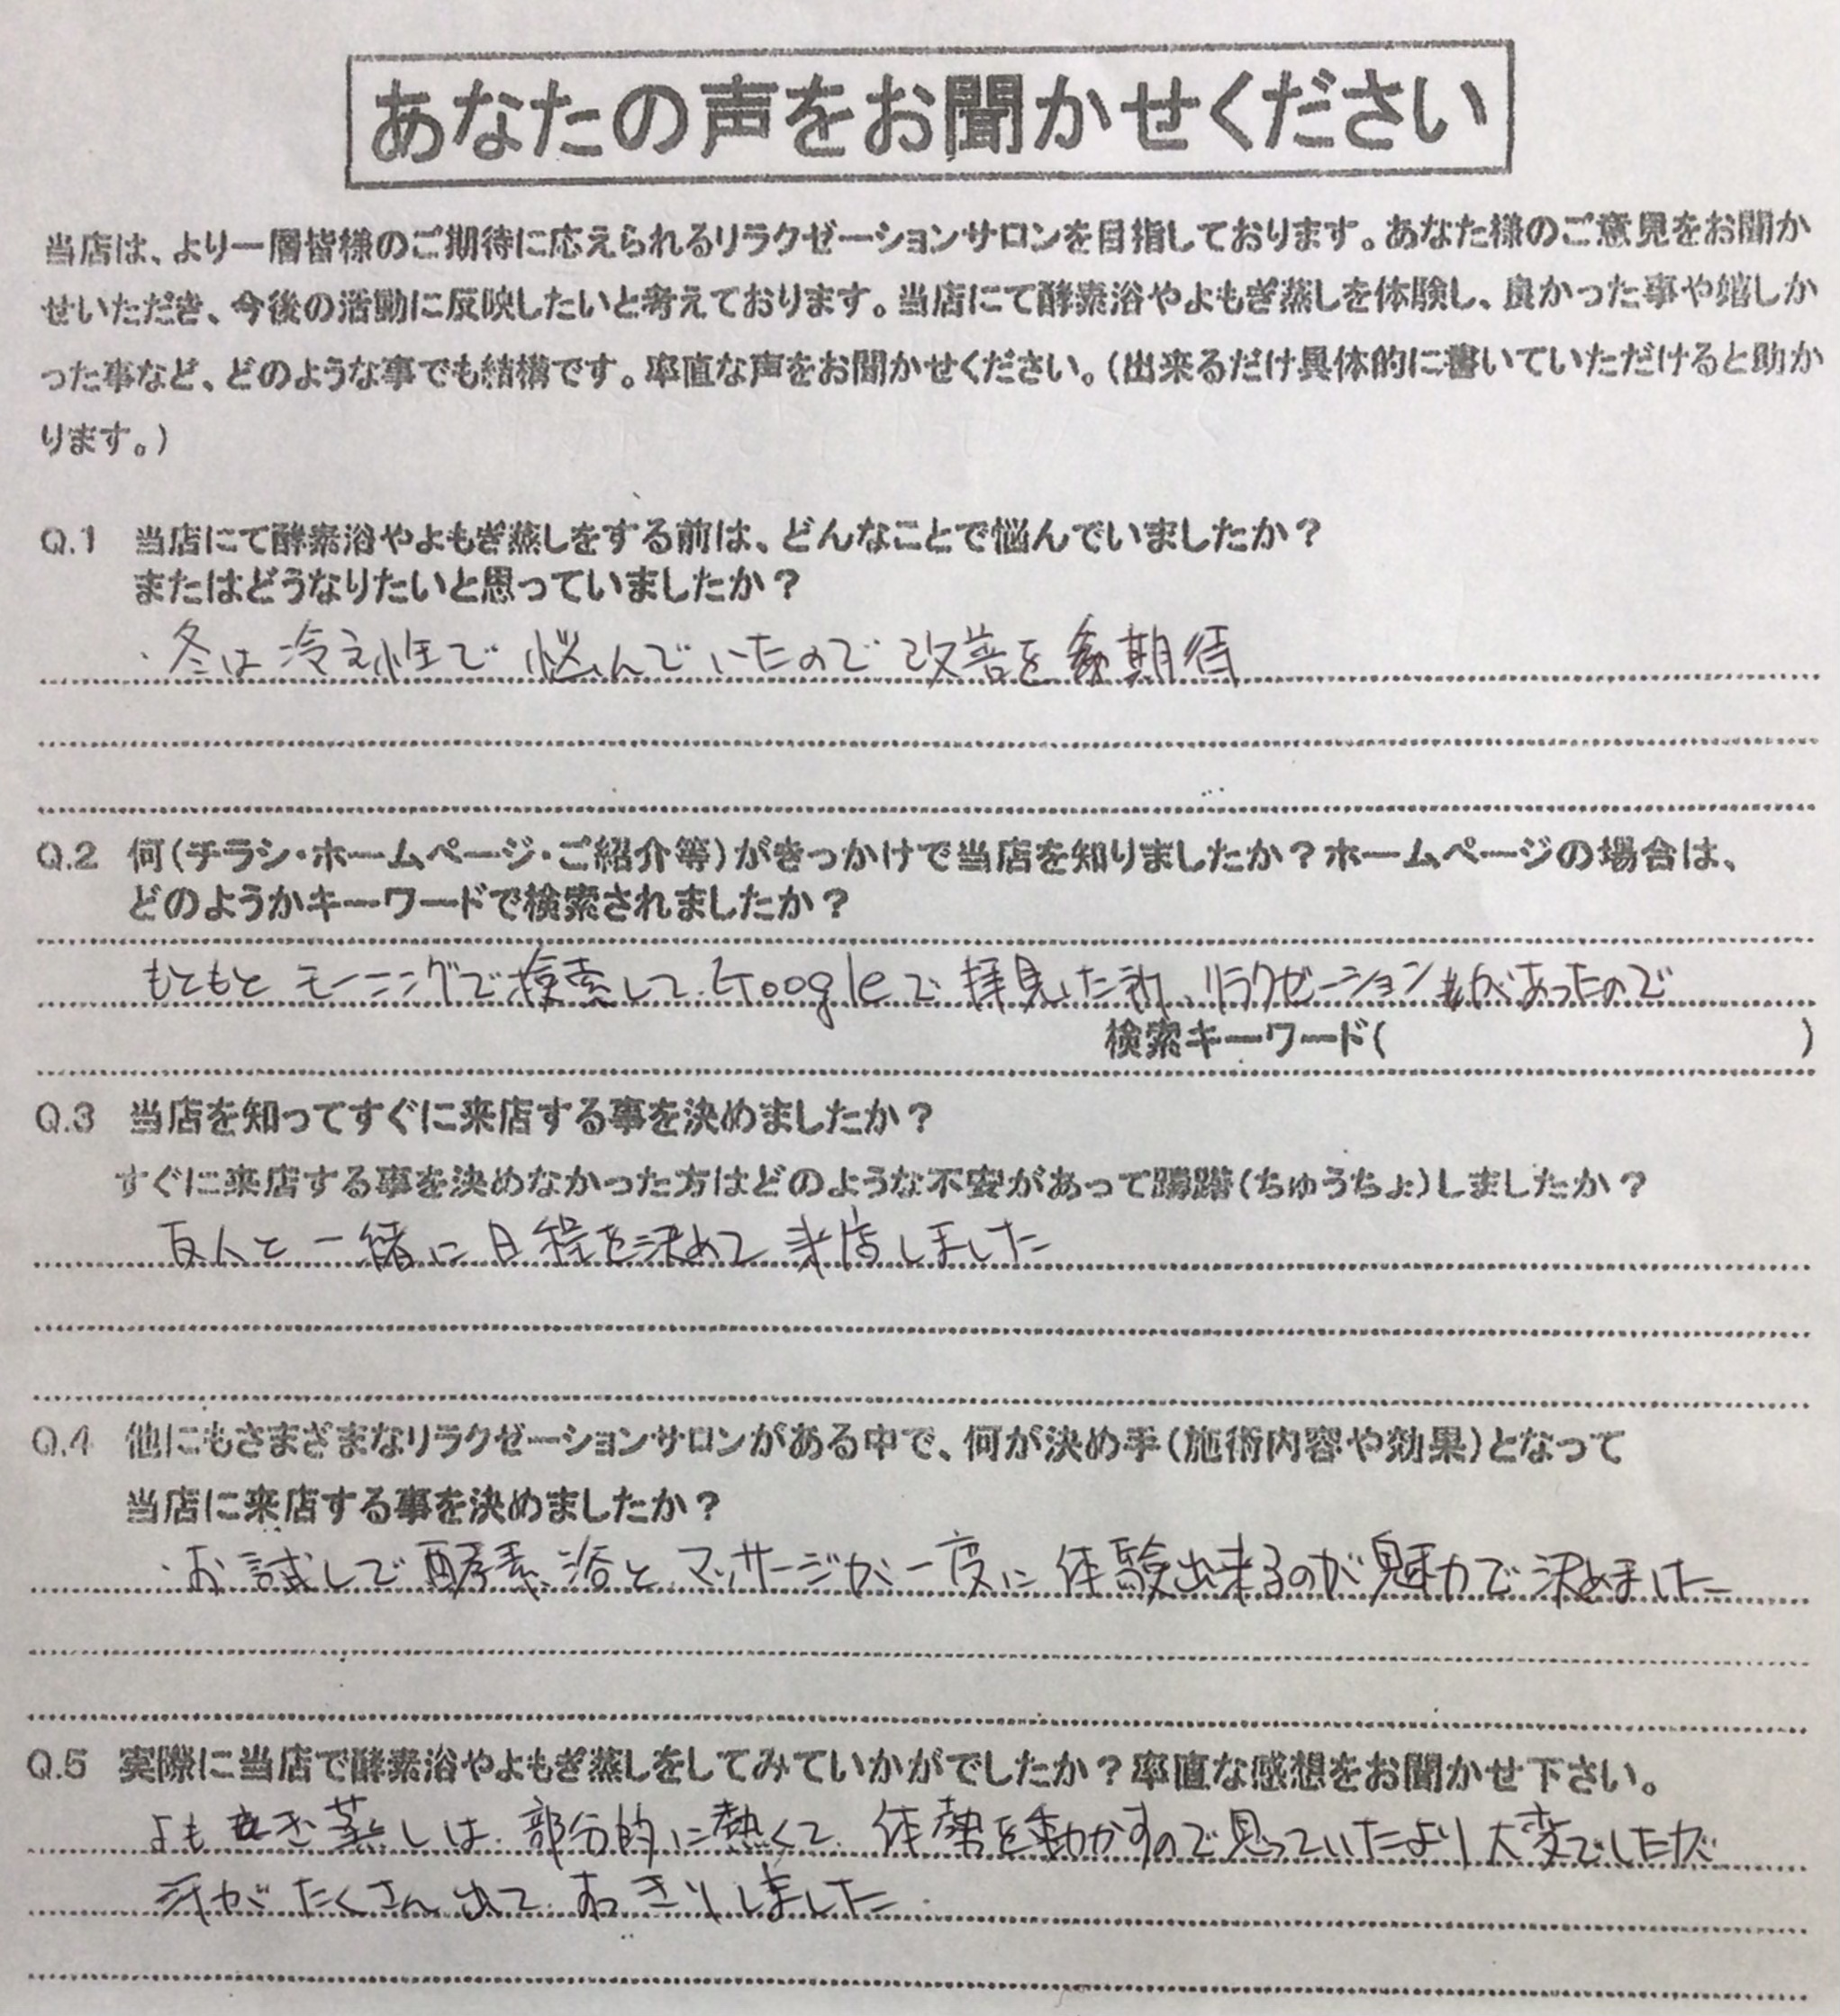 あなたの声をお聞かせください
当店は、より一層皆様のご期待に応えられるリラクゼーションサロンを目指しております。あなた様のご意見をお聞か
せいただき、今後の活動に反映したいと考えております。当店にて酵素浴やよもぎ蒸しを体験し、良かった事や嬉しか
った事など、どのような事でも結構です。率直な声をお聞かせください。(出来るだけ具体的に書いていただけると助か
ります。)
Q.1 当店にて酵素浴やよもぎ蒸しをする前は、どんなことで悩んでいましたか?
またはどうなりたいと思っていましたか?
・冬は冷え性で悩んでいたので改善を期待
Q.2 何(チラシ・ホームページ・ご紹介等)がきっかけで当店を知りましたか?ホームページの場合は、
どのようかキーワードで検索されましたか?
もともとモーニングで検索してGoogleで拝見した所、リラクゼーションがあったので
検索キーワード( )
Q.3 当店を知ってすぐに来店する事を決めましたか?
すぐに来店する事を決めなかった方はどのような不安があって躊躇(ちゅうちょ)しましたか?
友人と一緒に日程を決めて来店しました
Q.4 他にもさまざまなリラクゼーションサロンがある中で、何が決め手(施術内容や効果)となって
当店に来店する事を決めましたか?
・お試しで酵素浴とマッサージが一度に体験出来るのが魅力で決めました
Q.5 実際に当店で酵素浴やよもぎ蒸しをしてみていかがでしたか?率直な感想をお聞かせ下さい。
よもぎ蒸しは部分的に熱くて、体勢を動かすので思っていたより大変でしたが
汗がたくさん出てすっきりしました